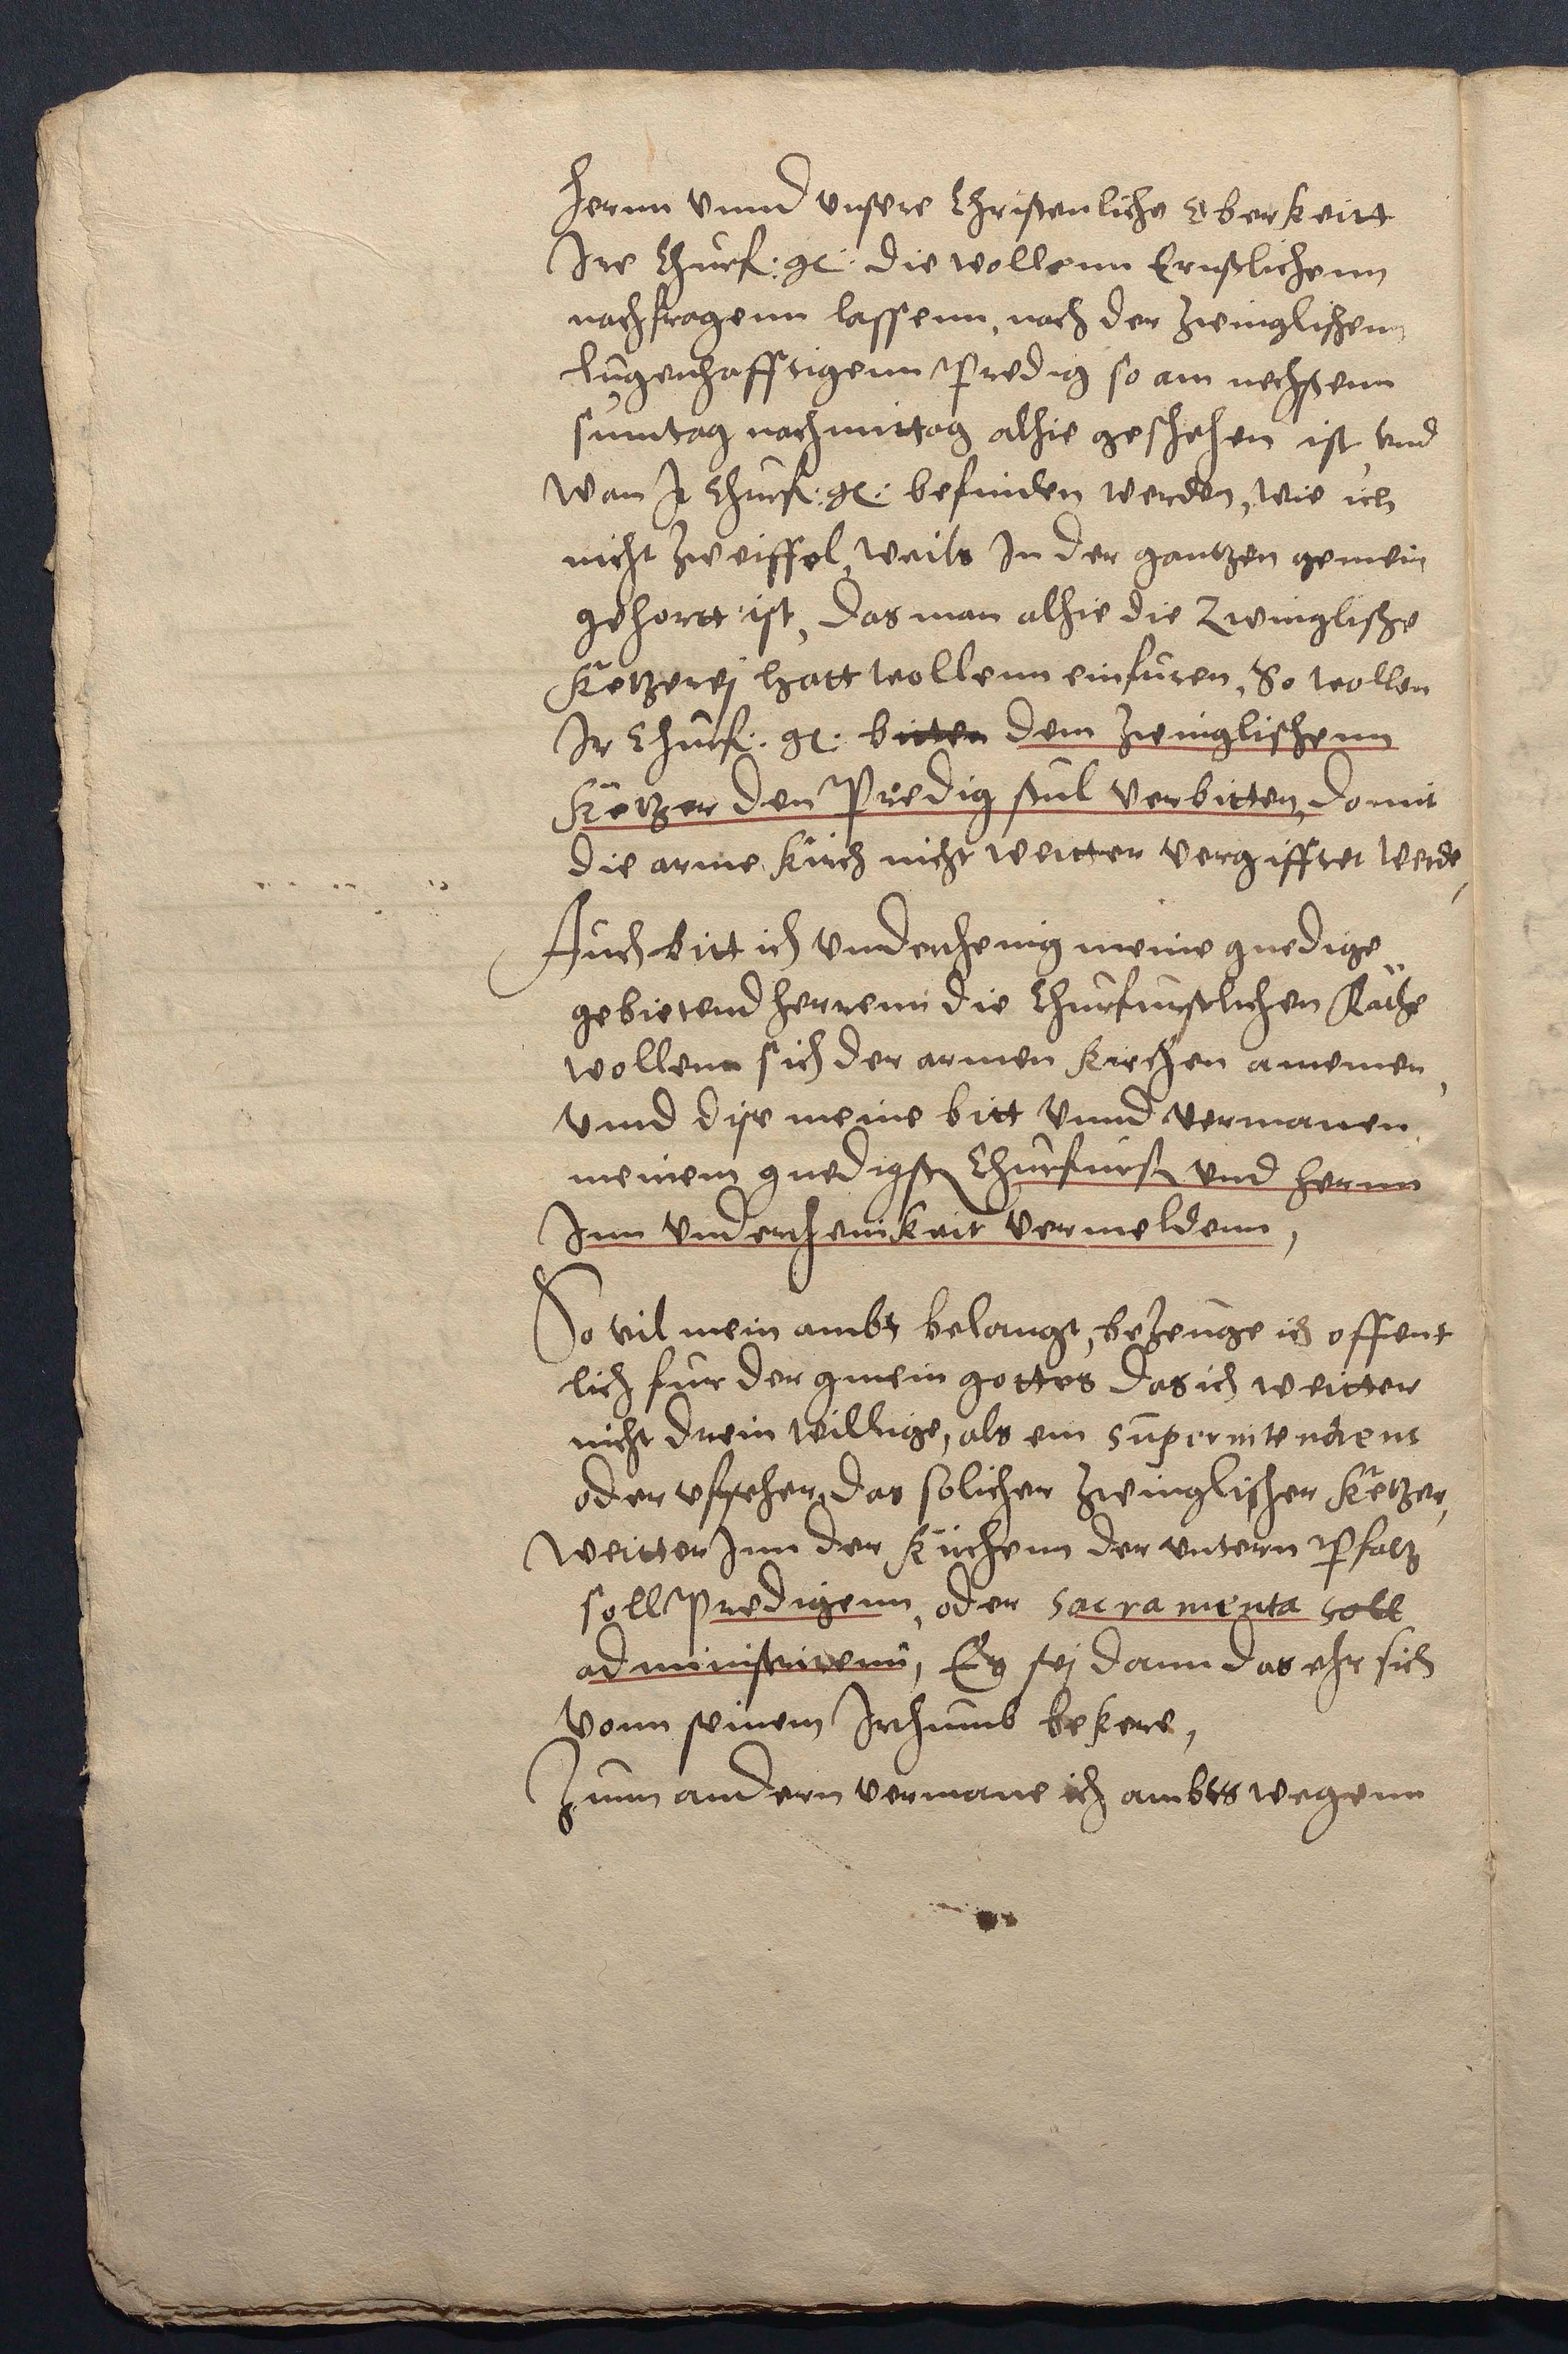 hernn vnnd vnsere Christenliche Oberkeitt
Ire Churf: g: die wollenn Ernstlichenn
nachfragenn lassenn, nach der zwinglischen
lugenhafftigenn Predig so am nechstenn
suntag nachmittag alhie geschehen ist, vnd
wan Ir Churf: g: befinden werden, wie ich
nicht zweiffel, weils In der gantzen gemein
gehortt ist, das man alhie die Zwinglische
Ketzerej hatt wollenn einfuren, So wollen
Ir Churf: g: bitten dem zwinglischenn
Ketzer den Predig stul verbitten, domit
die arme kirch nicht weitter vergifftet werde,
Auch bitt ich vnderthenig meine gnedige
gebietend herrenn die Churfurstlichen Räthe
wollenn sich der armen kirchen annemen,
vnnd dise meine bitt vnnd vermanen
meinem gnedigst Churfurst vnd hernn
Inn vnderthenikeit vermeldenn,
So vil mein ambt belangt, bezeuge ich offent
lich fur der gmein gottes das ich weitter
nicht drein willige, als ein superintendent
oder vffseher, das solicher zwinglischer Ketzer,
weitter Inn der kirchenn der vntern Pfaltz
soll Predigenn, oder sacramenta soll
administrirenn, Es sej dann das ehr sich
vonn seinem Irthumb bekere,
Zum andern vermane ich ambts wegenn